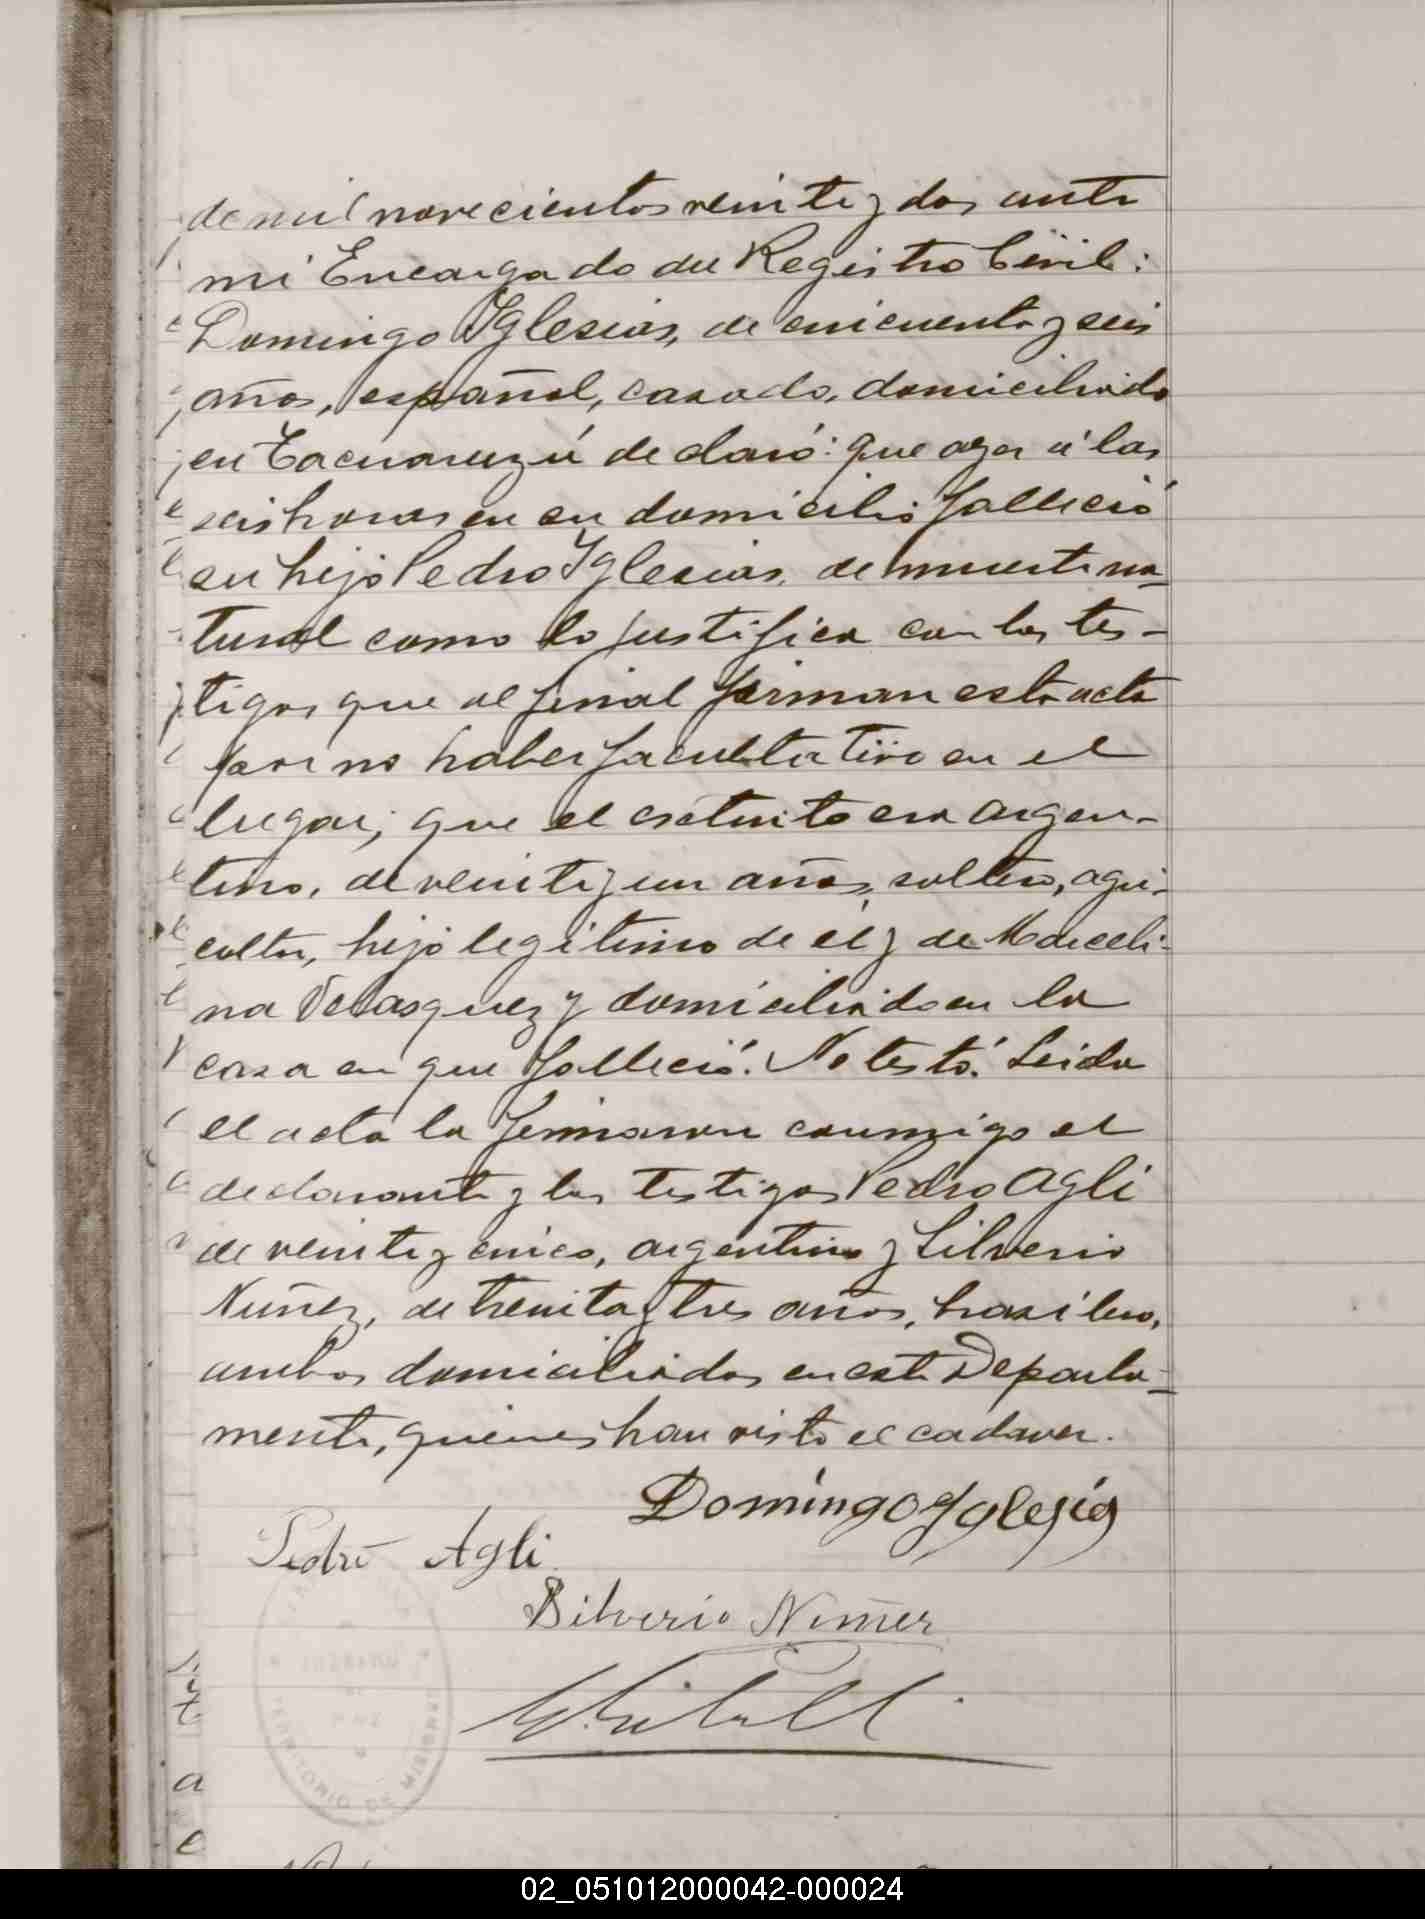 de mil novecientos veinte y dos ante
mi Encargado del Registro Civil:
Domingo Yglesias, de cincuenta y seis
años, español, casado, domiciliado
en Tacuaruzú declaró: que ayer á las
seis horas en su domicilio falleció
su hijo Pedro Yglesias, de muerte na-
tural como lo justifica con los tes-
tigos que al final firman esta acta
por no haber facultativo en el
lugar; que el extinto era argen-
tino, de veinte y un años, soltero, agri-
cultor, hijo legitimo de él y de Marceli-
na Velasquez y domiciliado en la
casa en que falleció. No testó. Leida
el acta la firmaron conmigo el
declarante y los testigos Pedro Agli
de veinte y cinco, argentino y Silverio
Nuñez, de treinta y tres años, brasilero,
ambos domiciliados en este Departa-
mento, quienes han visto el cadaver.
Domingo Yglesias
Pedro Agli
Silverio Nuñez
TERRITORIO DE MISIONES
02_051012000042-000024